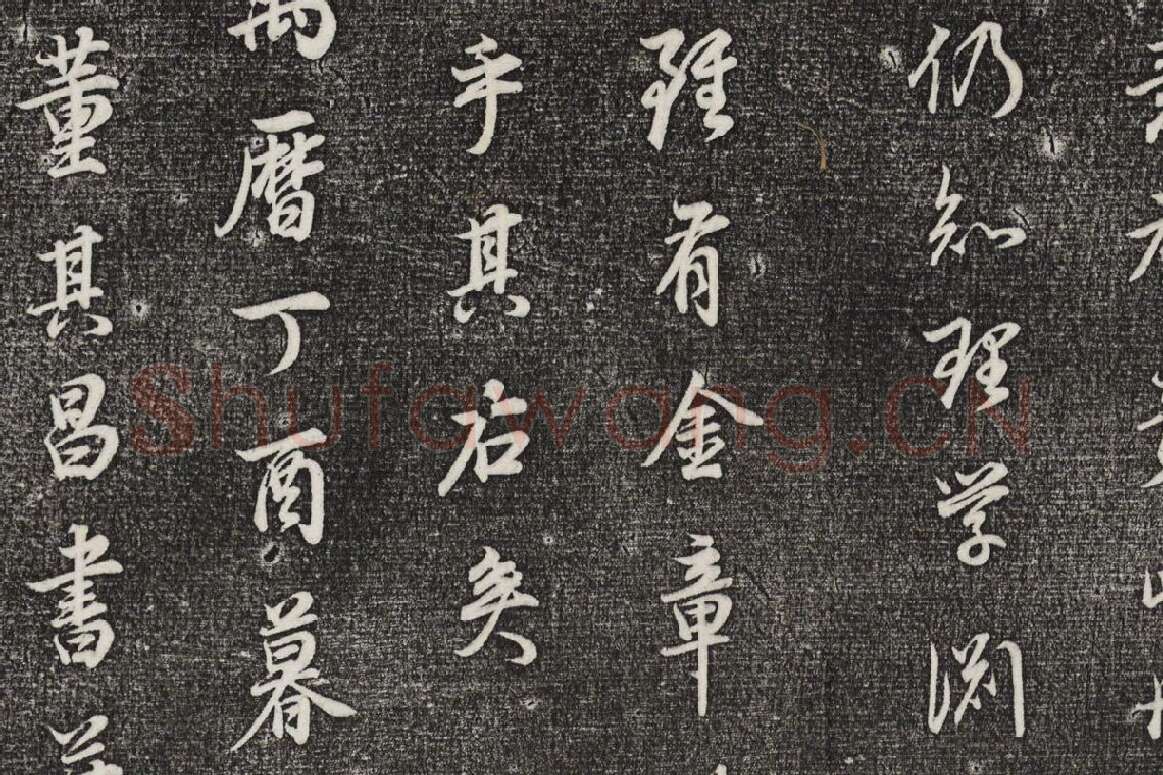 仍知理学渊
雖有金章
乎其右矣
萬曆丁酉暮
董其昌書
Shufawang.CN